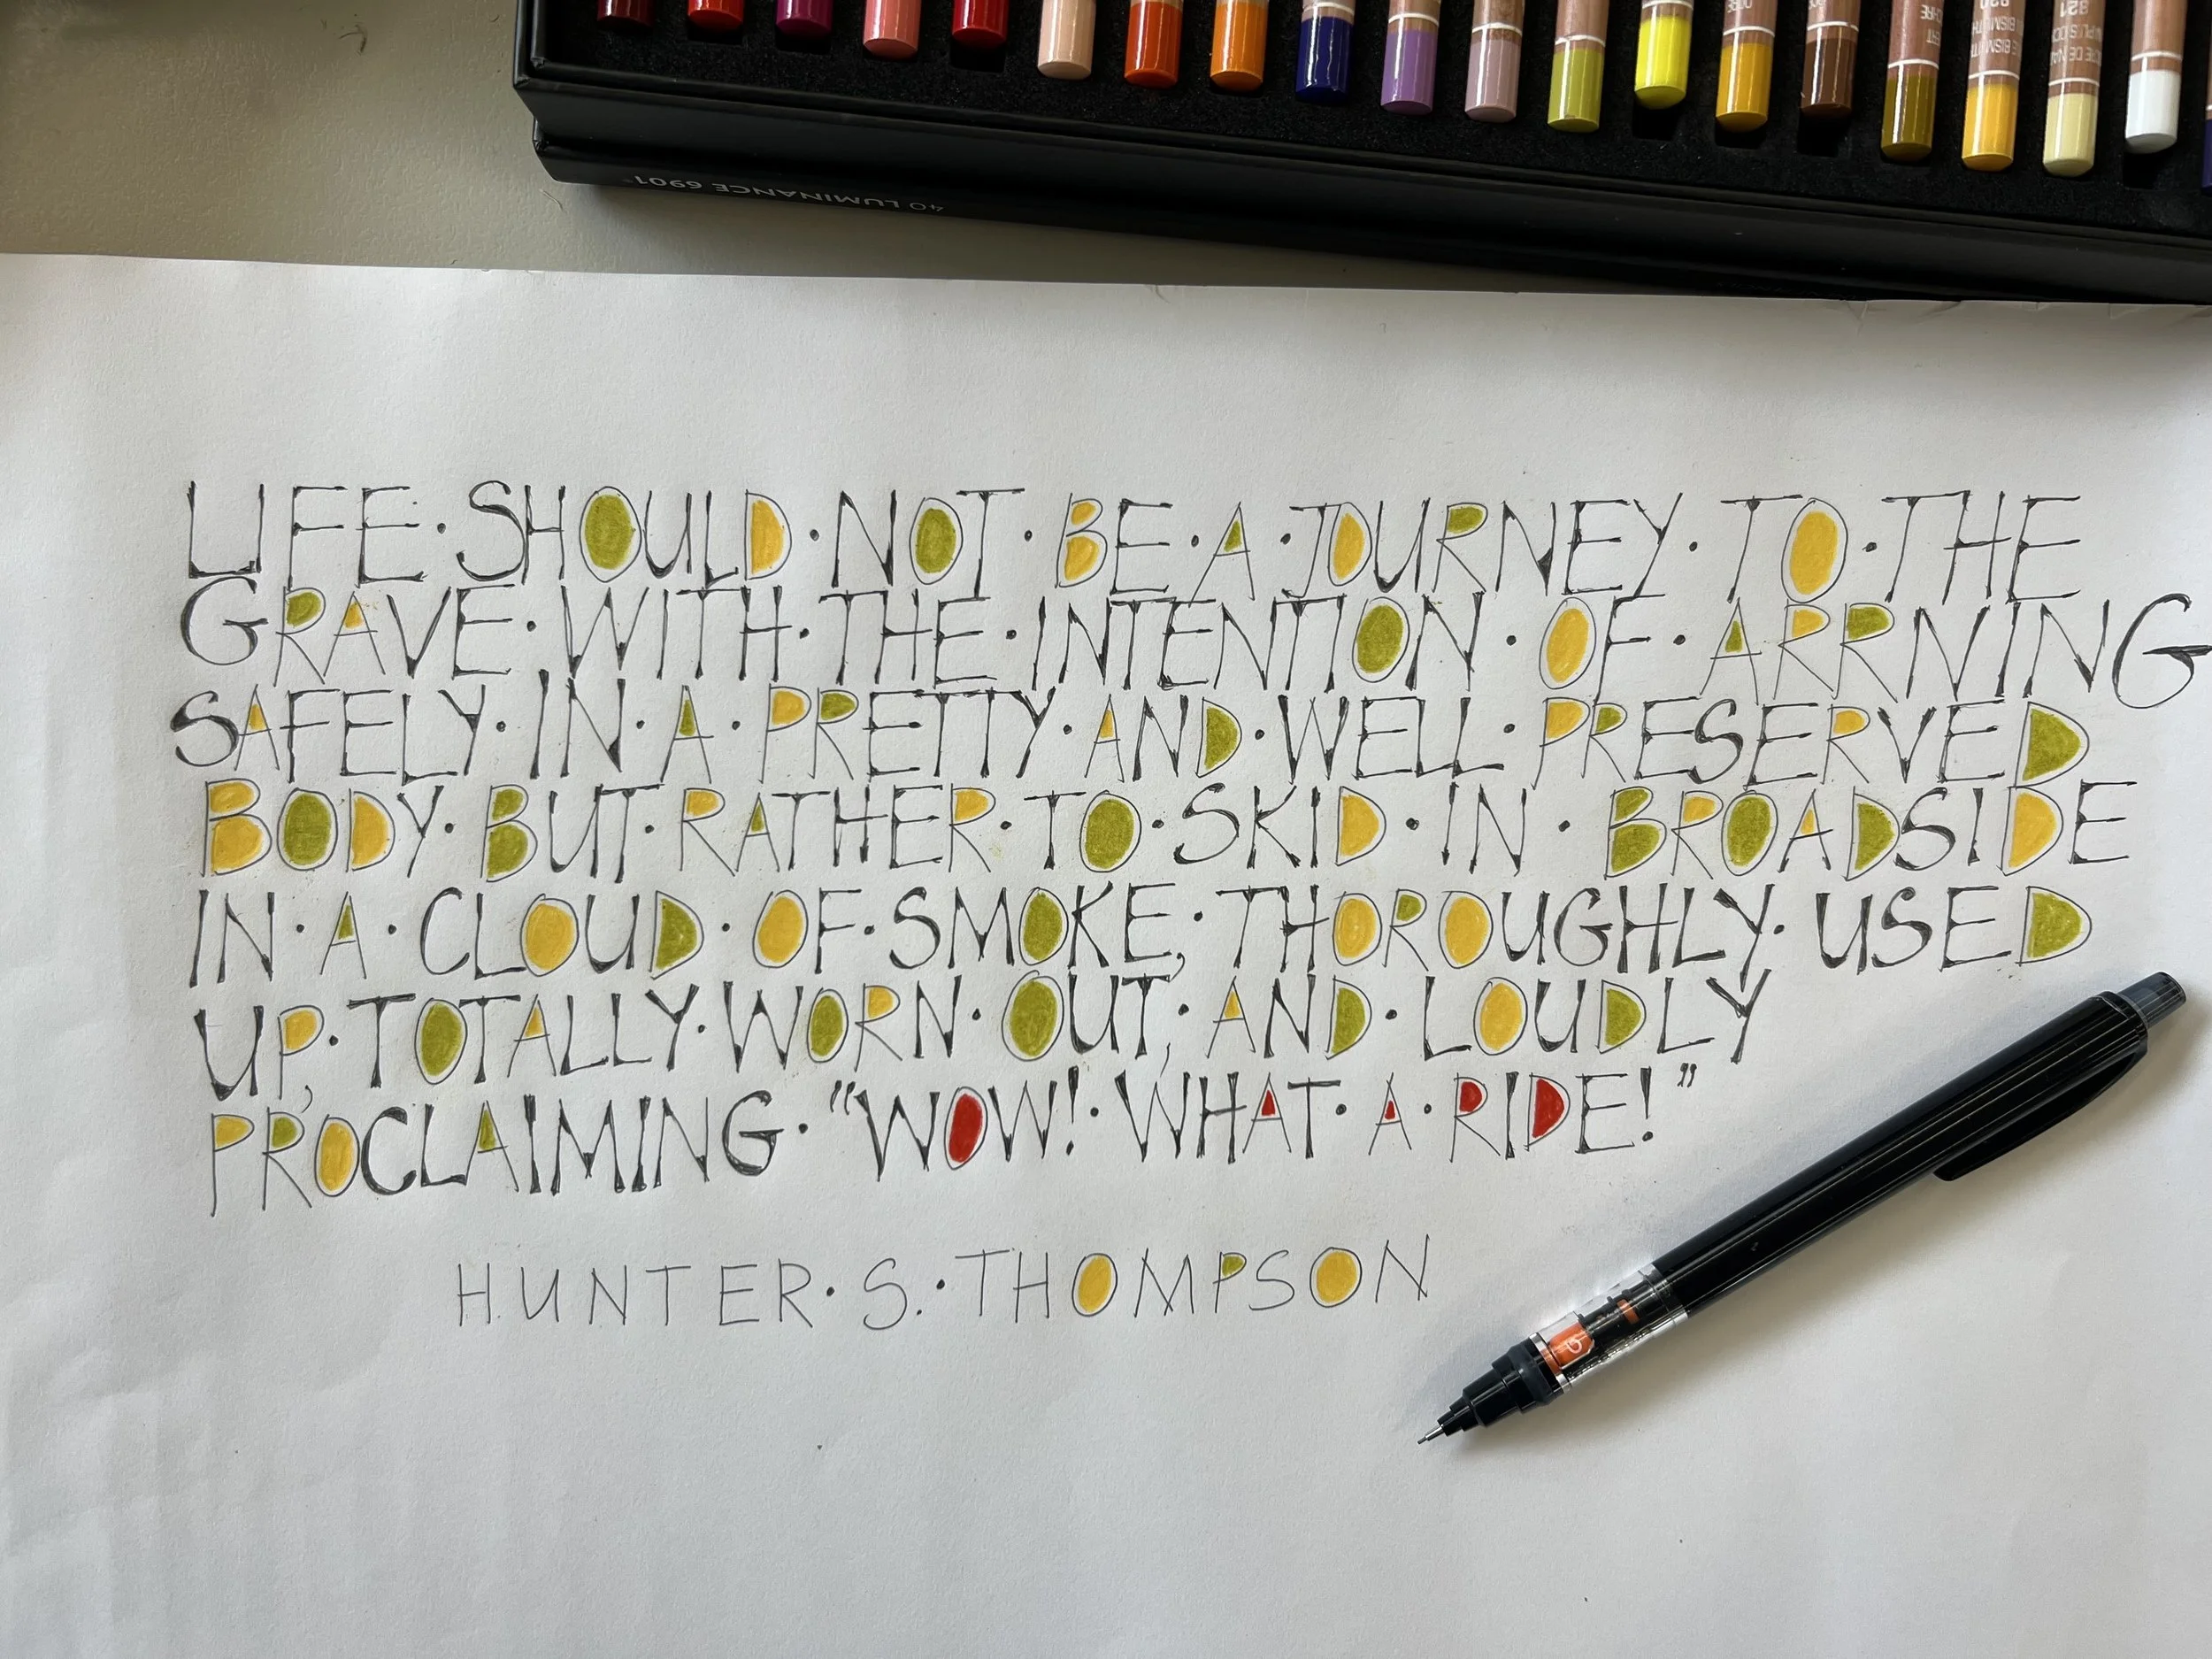 40 LUMINANCE 6901
821
LIFE · SHOULD · NOT · BE · A · JOURNEY · TO · THE
GRAVE · WITH · THE · INTENTION · OF · ARRIVING
SAFELY · IN · A · PRETTY · AND · WELL · PRESERVED
BODY · BUT · RATHER · TO · SKID · IN · BROADSIDE
IN · A · CLOUD · OF · SMOKE, · THOROUGHLY · USED
UP, · TOTALLY · WORN · OUT, · AND · LOUDLY
PROCLAIMING · "WOW! · WHAT · A · RIDE!"
HUNTER · S. · THOMPSON